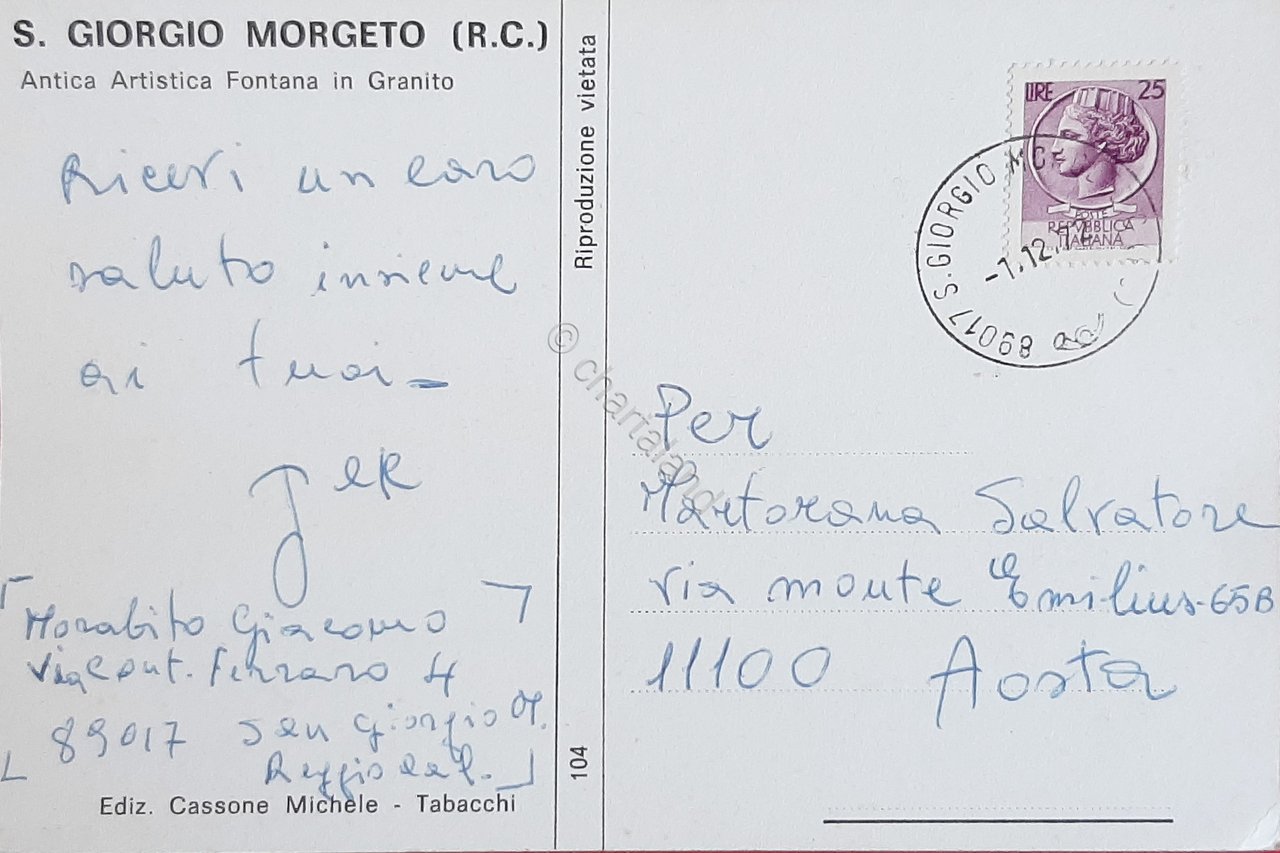 S. GIORGIO MORGETO (R.C.)
Antica Artistica Fontana in Granito
Ricevi un caro
saluto insieme
ai tuoi-
Morabito Giacomo
Via Cont. Ferraro 4
89017 San Giorgio M.
Reggio Cal.
Ediz. Cassone Michele - Tabacchi
Riproduzione vietata
104
© chartaland
LIRE 25
POSTE
REPVBBLICA
ITALIANA
89017 S. GIORGIO
-1.12.
Per
Martorana Salvatore
via monte Emilius-65B
11100 Aosta